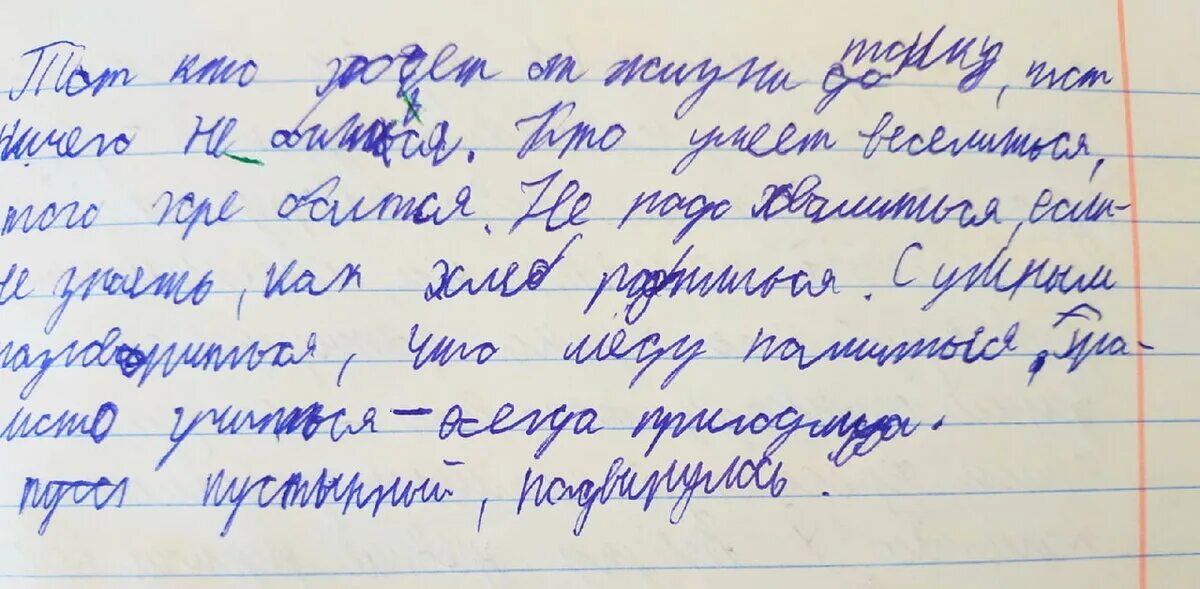 Тот кто ходет от жизни до танку, тот
ничего не боится. Кто умеет веселиться,
того хре боится. Не надо хвалиться, если
не знаеть, как хлеб родиться. С умным
разговориться, что мёду напиться. Гра-
моте учиться – всегда пригодица.
пуст пустынный, подвинулось.